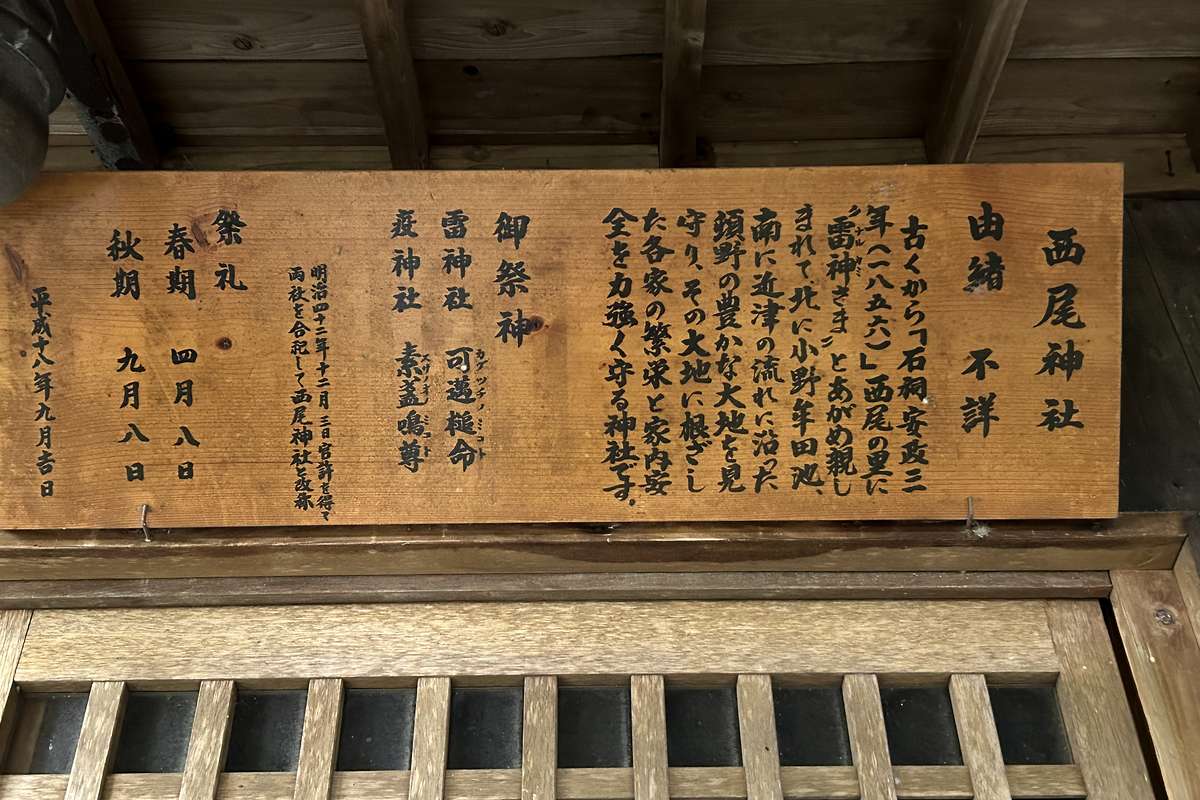 西尾神社
由緒 不詳
古くから「石祠安政三
年(一八五六)」西尾の里に
〝雷神さま〟とあがめ親し
まれて北に小野牟田池、
南に近津の流れに沿った
頭野の豊かな大地を見
守り、その大地に根ざし
た各家の繁栄と家内安
全を力強く守る神社です。
御祭神
雷神社 可遇槌命
カグツチノミコト
疫神社 素盞鳴尊
スサノオノミコト
明治四十二年十二月三日官許を得て
両社を合祀して西尾神社と改称
祭礼
春期 四月八日
秋期 九月八日
平成十八年九月吉日